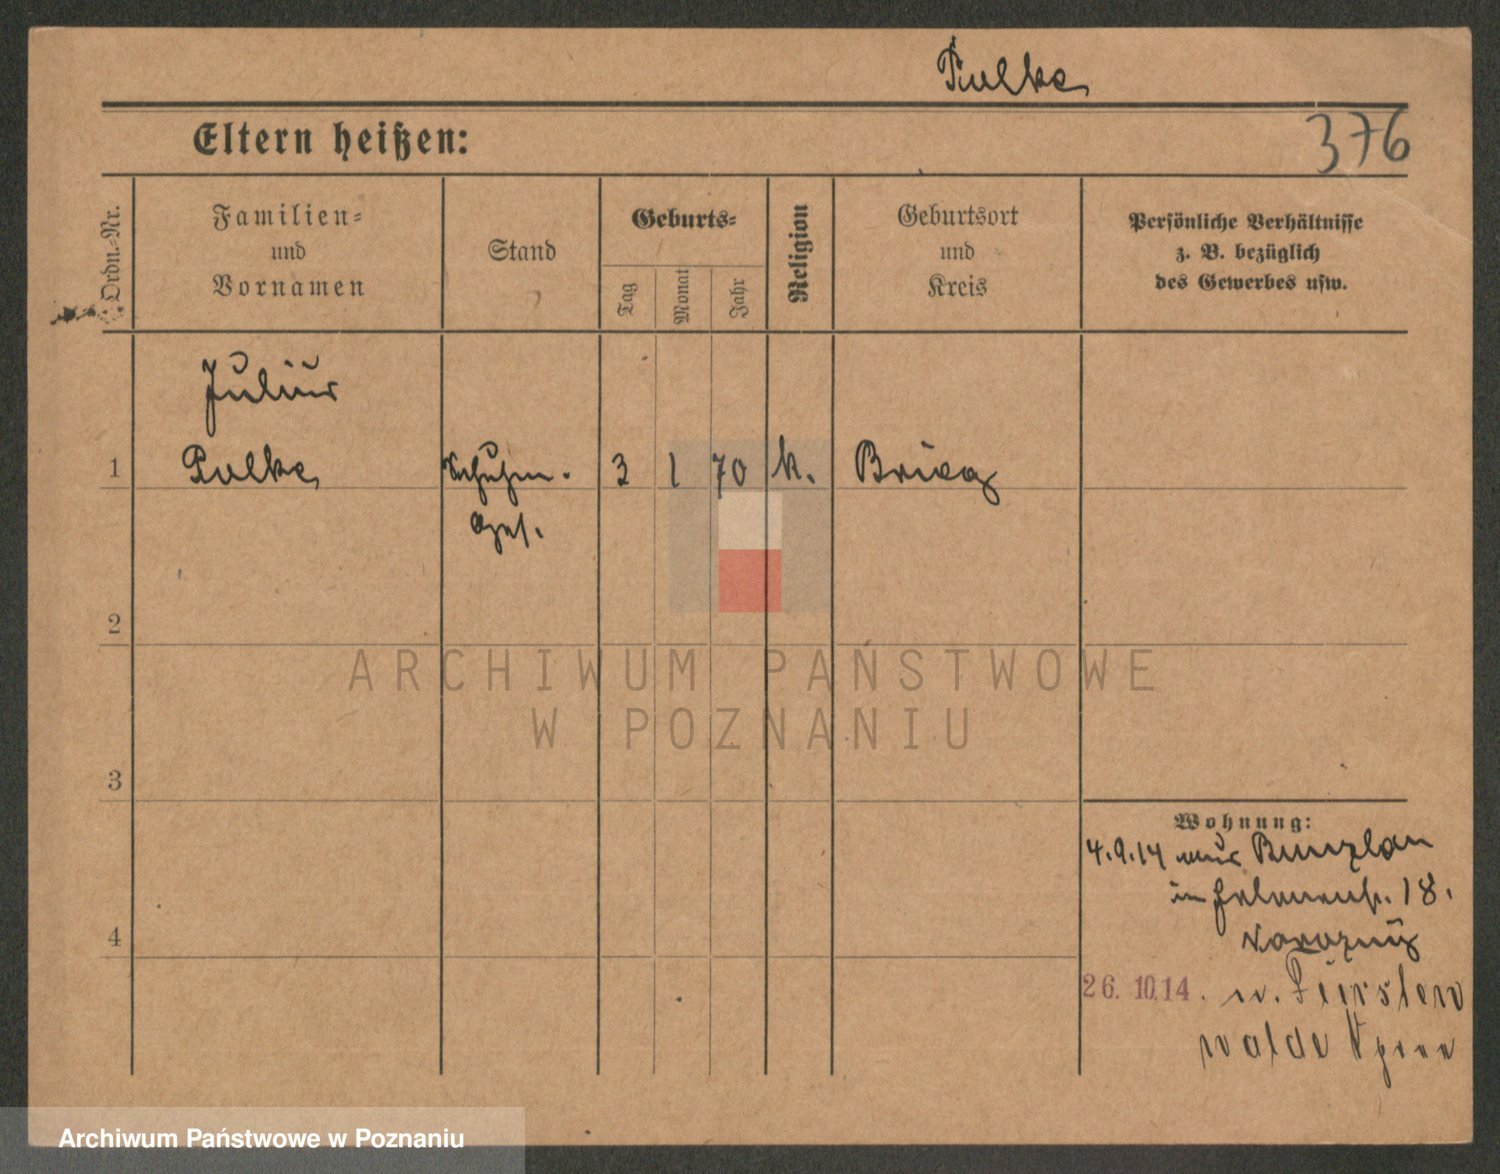 Pulke
376
Eltern heißen:
Ordn.-Nr.
Familien-
und
Vornamen
Stand
Geburts-
Tag
Monat
Jahr
Religion
Geburtsort
und
Kreis
Persönliche Verhältnisse
z. B. bezüglich
des Gewerbes usw.
Julius
1 Pulke Schuhm. 3 1 70 k. Brieg
Ges.
2
3
4
Wohnung:
4.9.14 aus Bunzlau
in Helenenstr. 18.
26. 10.14. n. Fürsten
walde Spree
ARCHIWUM PAŃSTWOWE
W POZNANIU
Archiwum Państwowe w Poznaniu